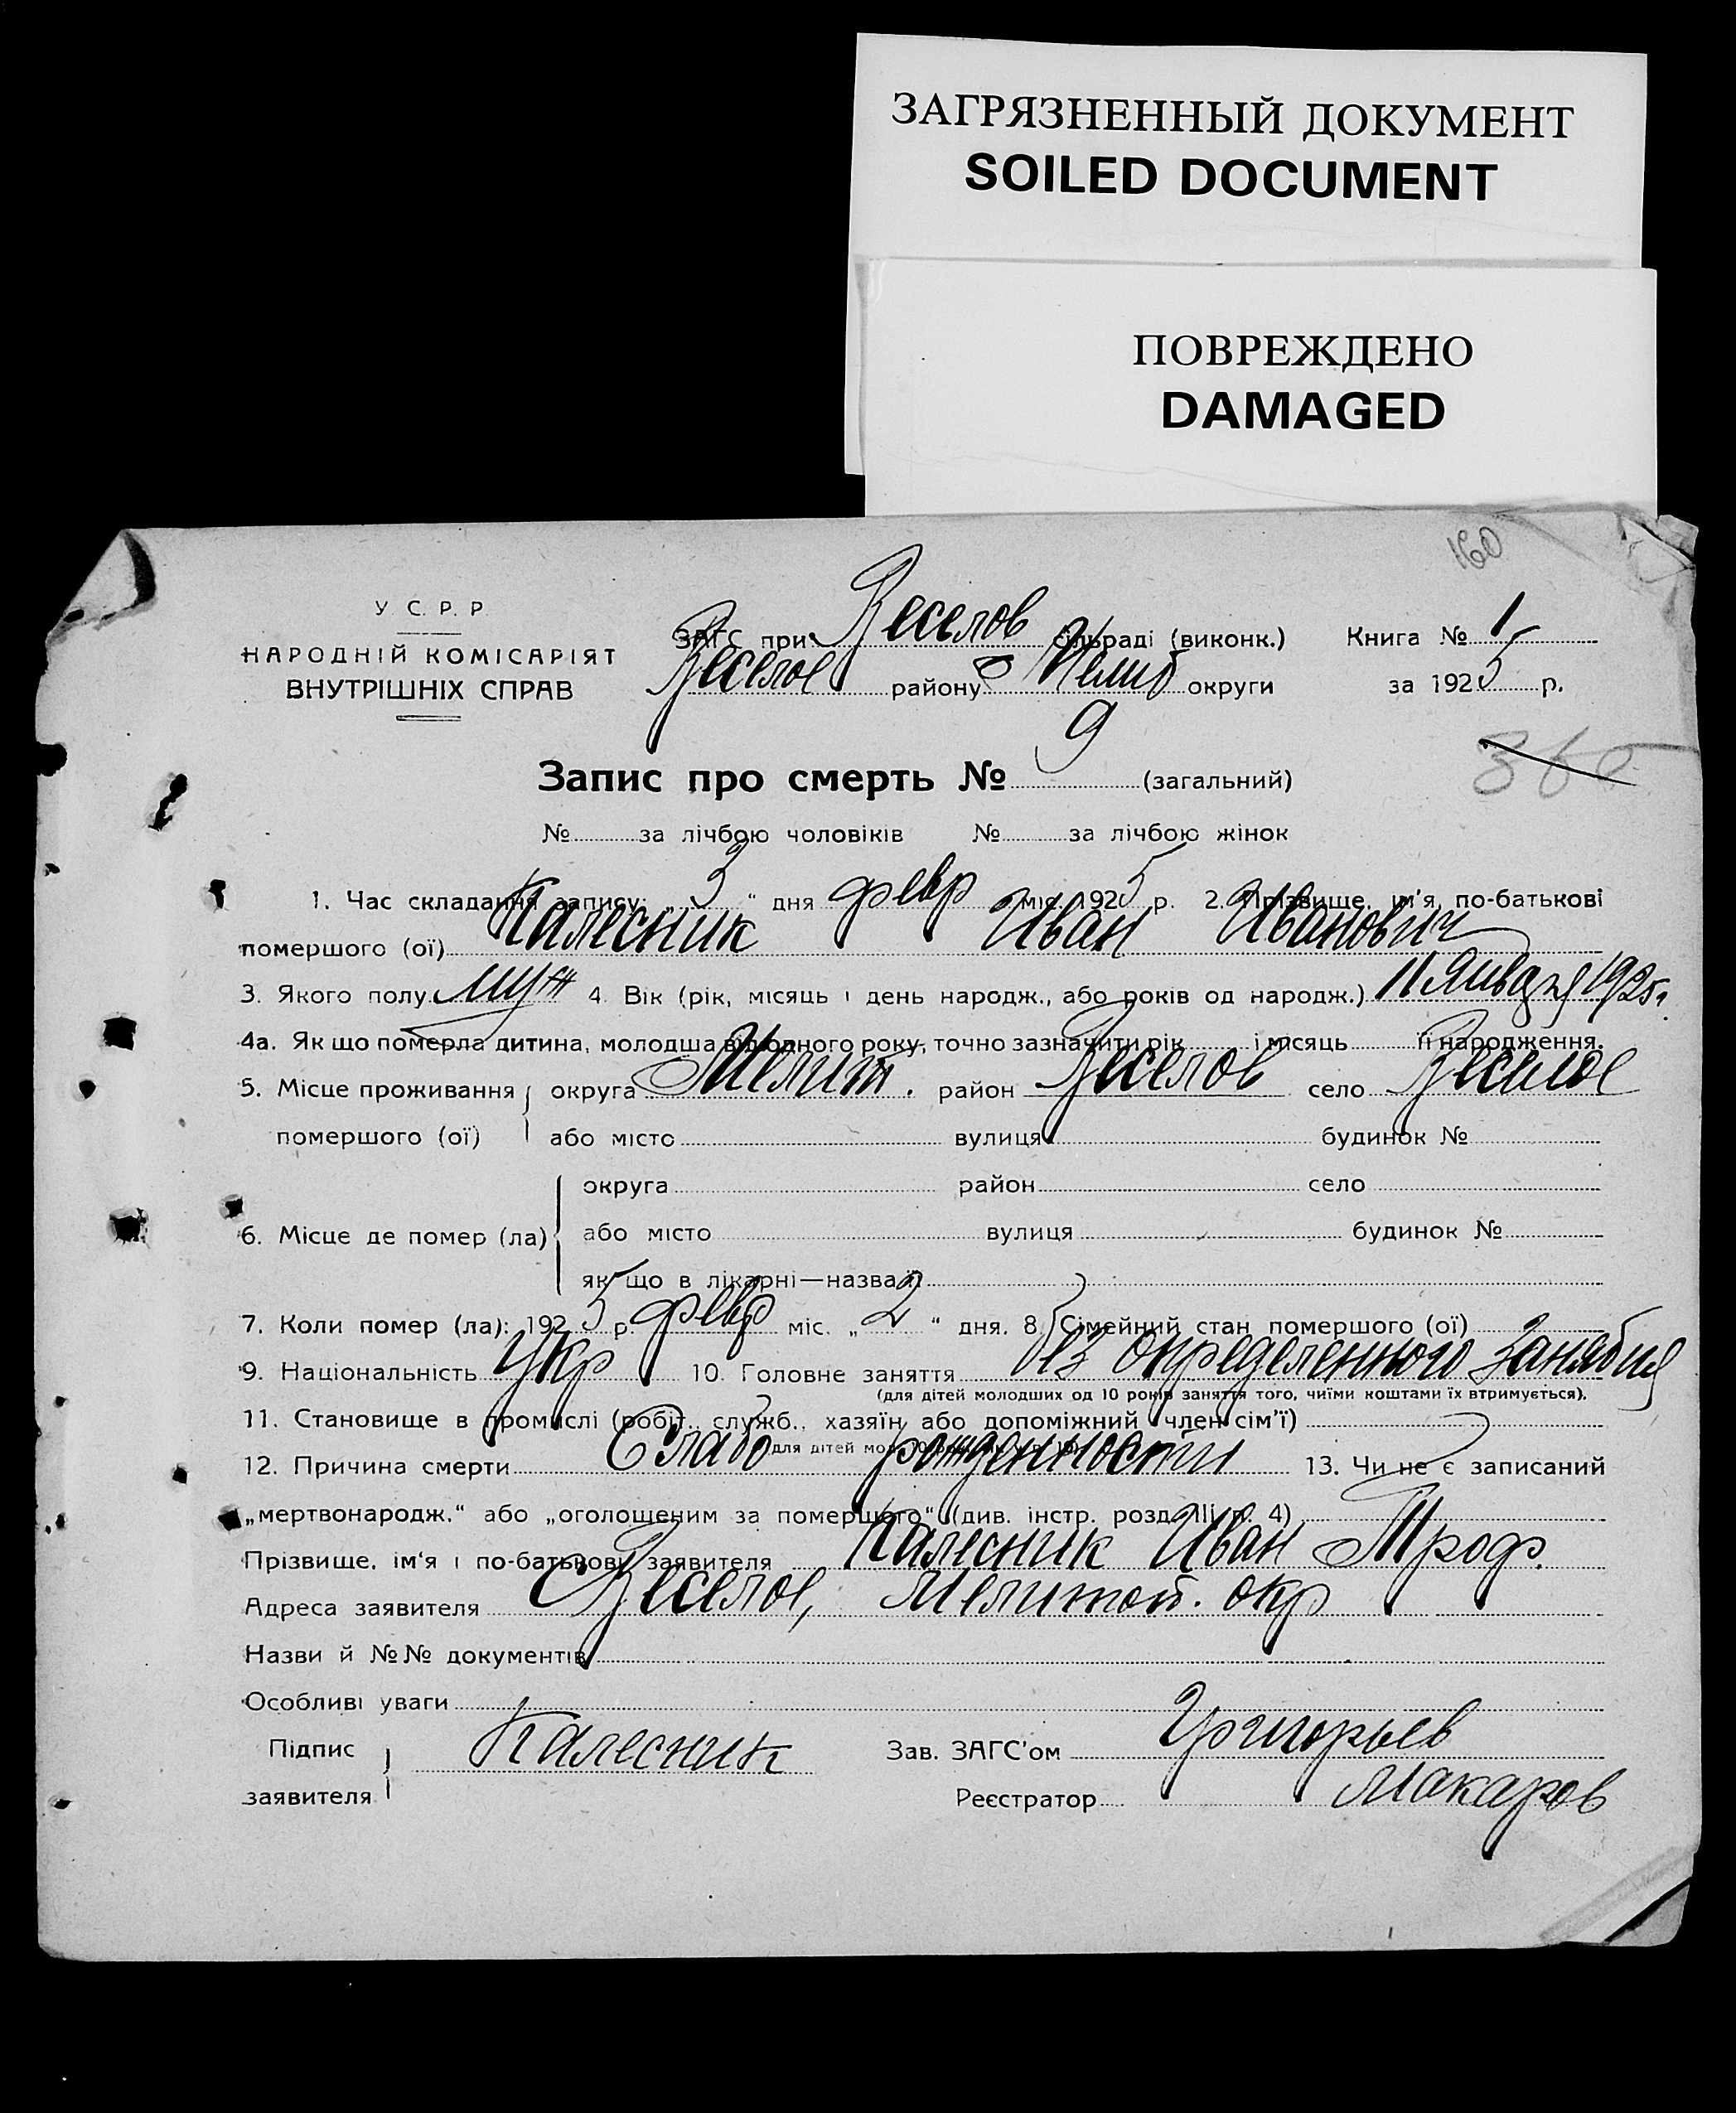 ЗАГРЯЗНЕННЫЙ ДОКУМЕНТ
SOILED DOCUMENT
ПОВРЕЖДЕНО
DAMAGED
160
У. С. Р. Р.
НАРОДНІЙ КОМІСАРІЯТ
ВНУТРІШНІХ СПРАВ
ЗАГС при Веселов сільраді (виконк.)
Веселое району Мелит округи
Книга № 1
за 1925 р.
360
Запис про смерть № 9 (загальний)
№ за лічбою чоловіків № за лічбою жінок
1. Час складання запису: „ 3 “ дня февр міс. 1925 р. 2. Прізвище, ім'я, по-батькові
помершого (ої) Калесник Иван Иванович
3. Якого полу муж 4. Вік (рік, місяць і день народж., або років од народж.) 11 Января 1925 г.
4а. Як що померла дитина, молодша від одного року, точно зазначити рік і місяць її народження.
5. Місце проживання округа Мелит. район Веселов село Веселое
помершого (ої) або місто вулиця будинок №
округа район село
6. Місце де помер (ла) або місто вулиця будинок №
як що в лікарні—назва її
7. Коли помер (ла): 1925 р. февр міс. „ 2 “ дня. 8. Сімейний стан помершого (ої)
9. Національність Укр 10. Головне заняття без определенного занятия
(для дітей молодших од 10 років заняття того, чиїми коштами їх втримується).
11. Становище в промислі (робіт., служб., хазяїн або допоміжний член сім'ї)
12. Причина смерти Слабо рожденности 13. Чи не є записаний
„мертвонародж.“ або „оголошеним за помершого“ (див. інстр. розд. III п. 4)
Прізвище, ім'я і по-батькові заявителя Калесник Иван Троф.
Адреса заявителя Веселое, Мелитоп. окр
Назви й №№ документів
Особливі уваги
Підпис заявителя Калесник Зав. ЗАГС'ом Григорьев
Реєстратор Макаров